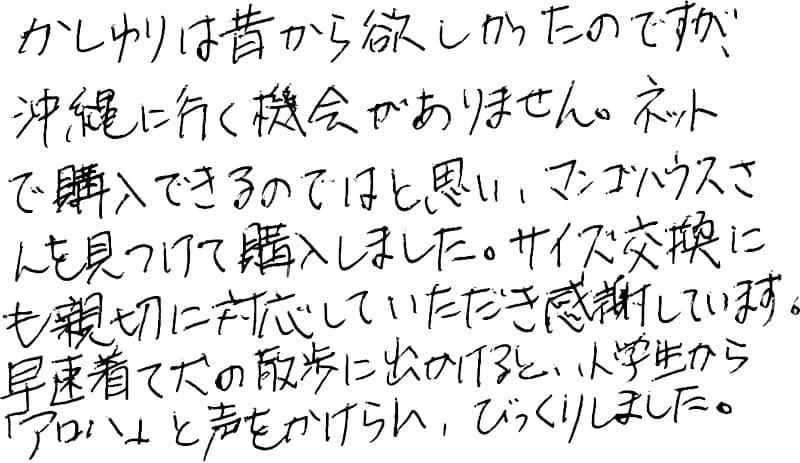 かしゆりは昔から欲しかったのですが、
沖縄に行く機会がありません。ネット
で購入できるのではと思い、マンゴハウスさ
んを見つけて購入しました。サイズ交換に
も親切に対応していただき感謝しています。
早速着て犬の散歩に出かけると、小学生から
「アロハ」と声をかけられ、びっくりしました。